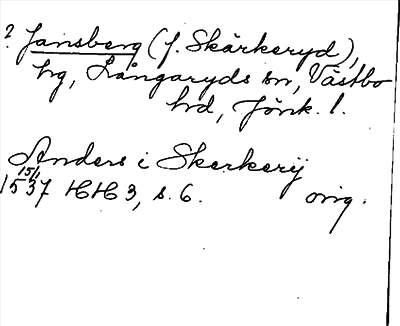 ? Jansberg (f. Skärkeryd),
hg, Långaryds sn, Västbo
hd, Jönk. l.
Anders i Skerkerij
15/1
1537 HH 3, s. 6. orig.